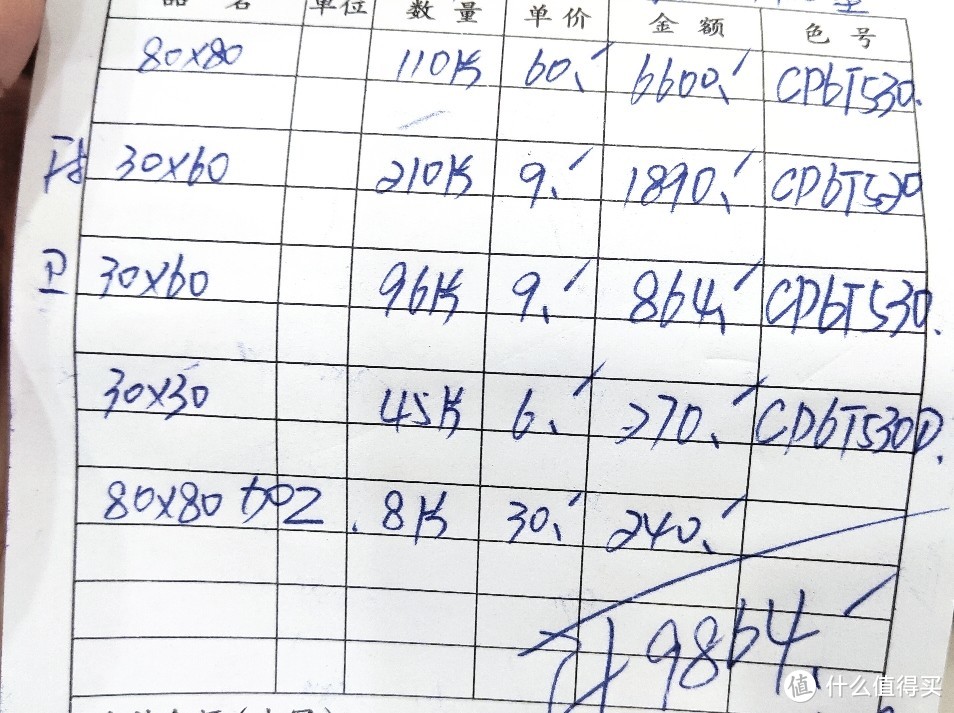 品 名 单位 数量 单价 金额 色号
80x80 110片 60.- 6600.- CP6T530.
30x60 210片 9.- 1890.- CP6T520
卫 30x60 96片 9.- 864.- CP6T530.
30x30 45片 6.- 270.- CP6T530D.
80x80 8片 30.- 240.-
计 9864.-
值 什么值得买